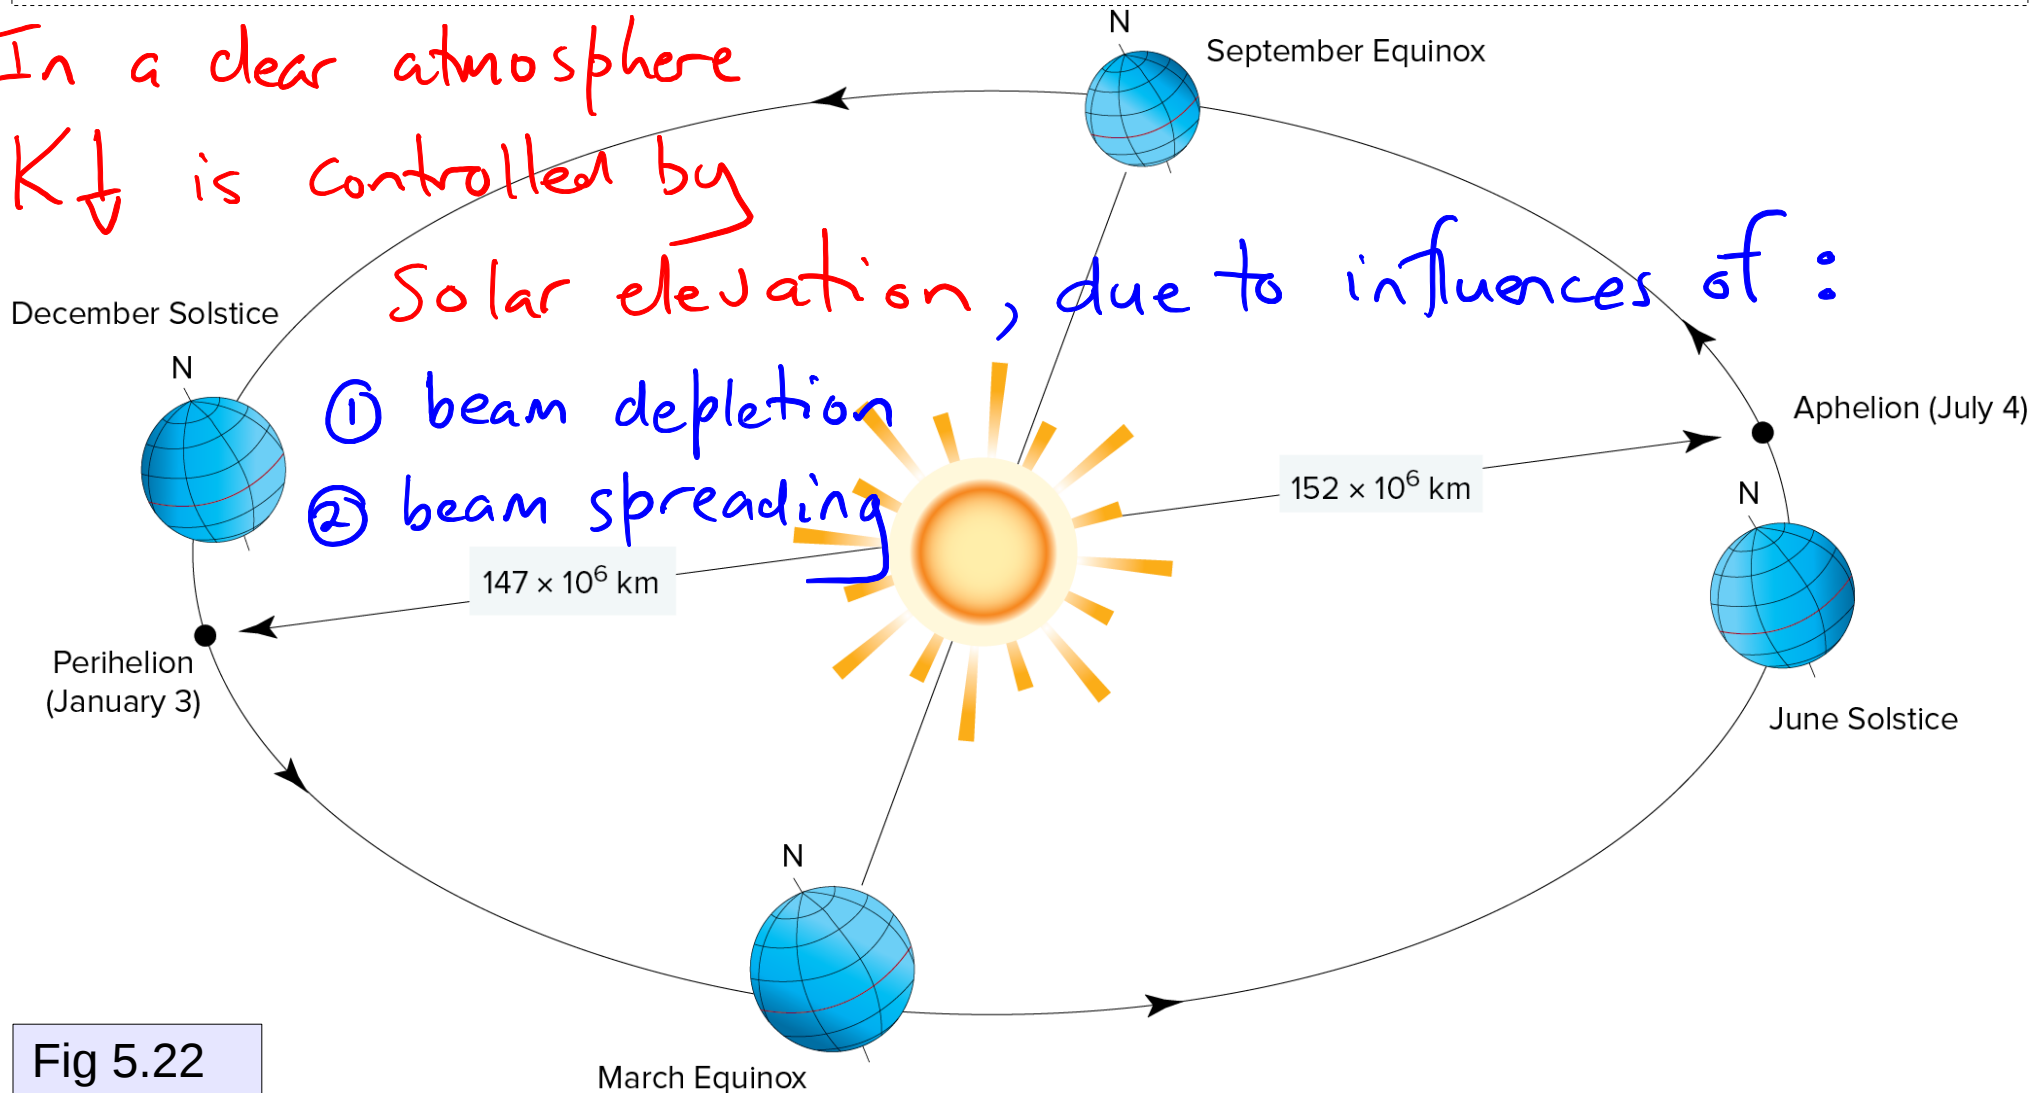 In a clear atmosphere
K↓ is controlled by
Solar elevation, due to influences of :
① beam depletion
② beam spreading
N
September Equinox
December Solstice
N
Aphelion (July 4)
152 × 10⁶ km
N
147 × 10⁶ km
Perihelion
(January 3)
June Solstice
N
March Equinox
Fig 5.22